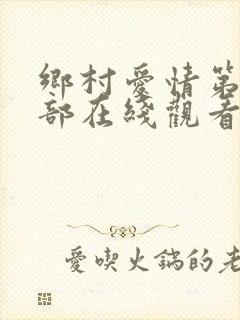 鄉村愛情第
部在綫觀看
愛喫火鍋的老